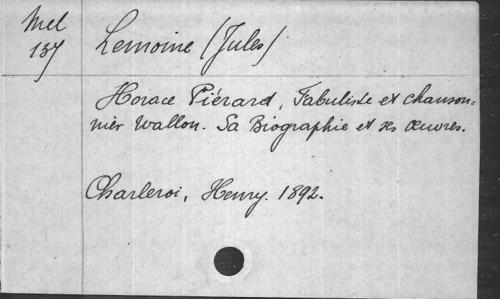 Mel
157
Lemoine (Jules)
Horace Piérard, Fabuliste et chanson=
nier Wallon. Sa Biographie et ses œuvres.
Charleroi, Henry. 1892.